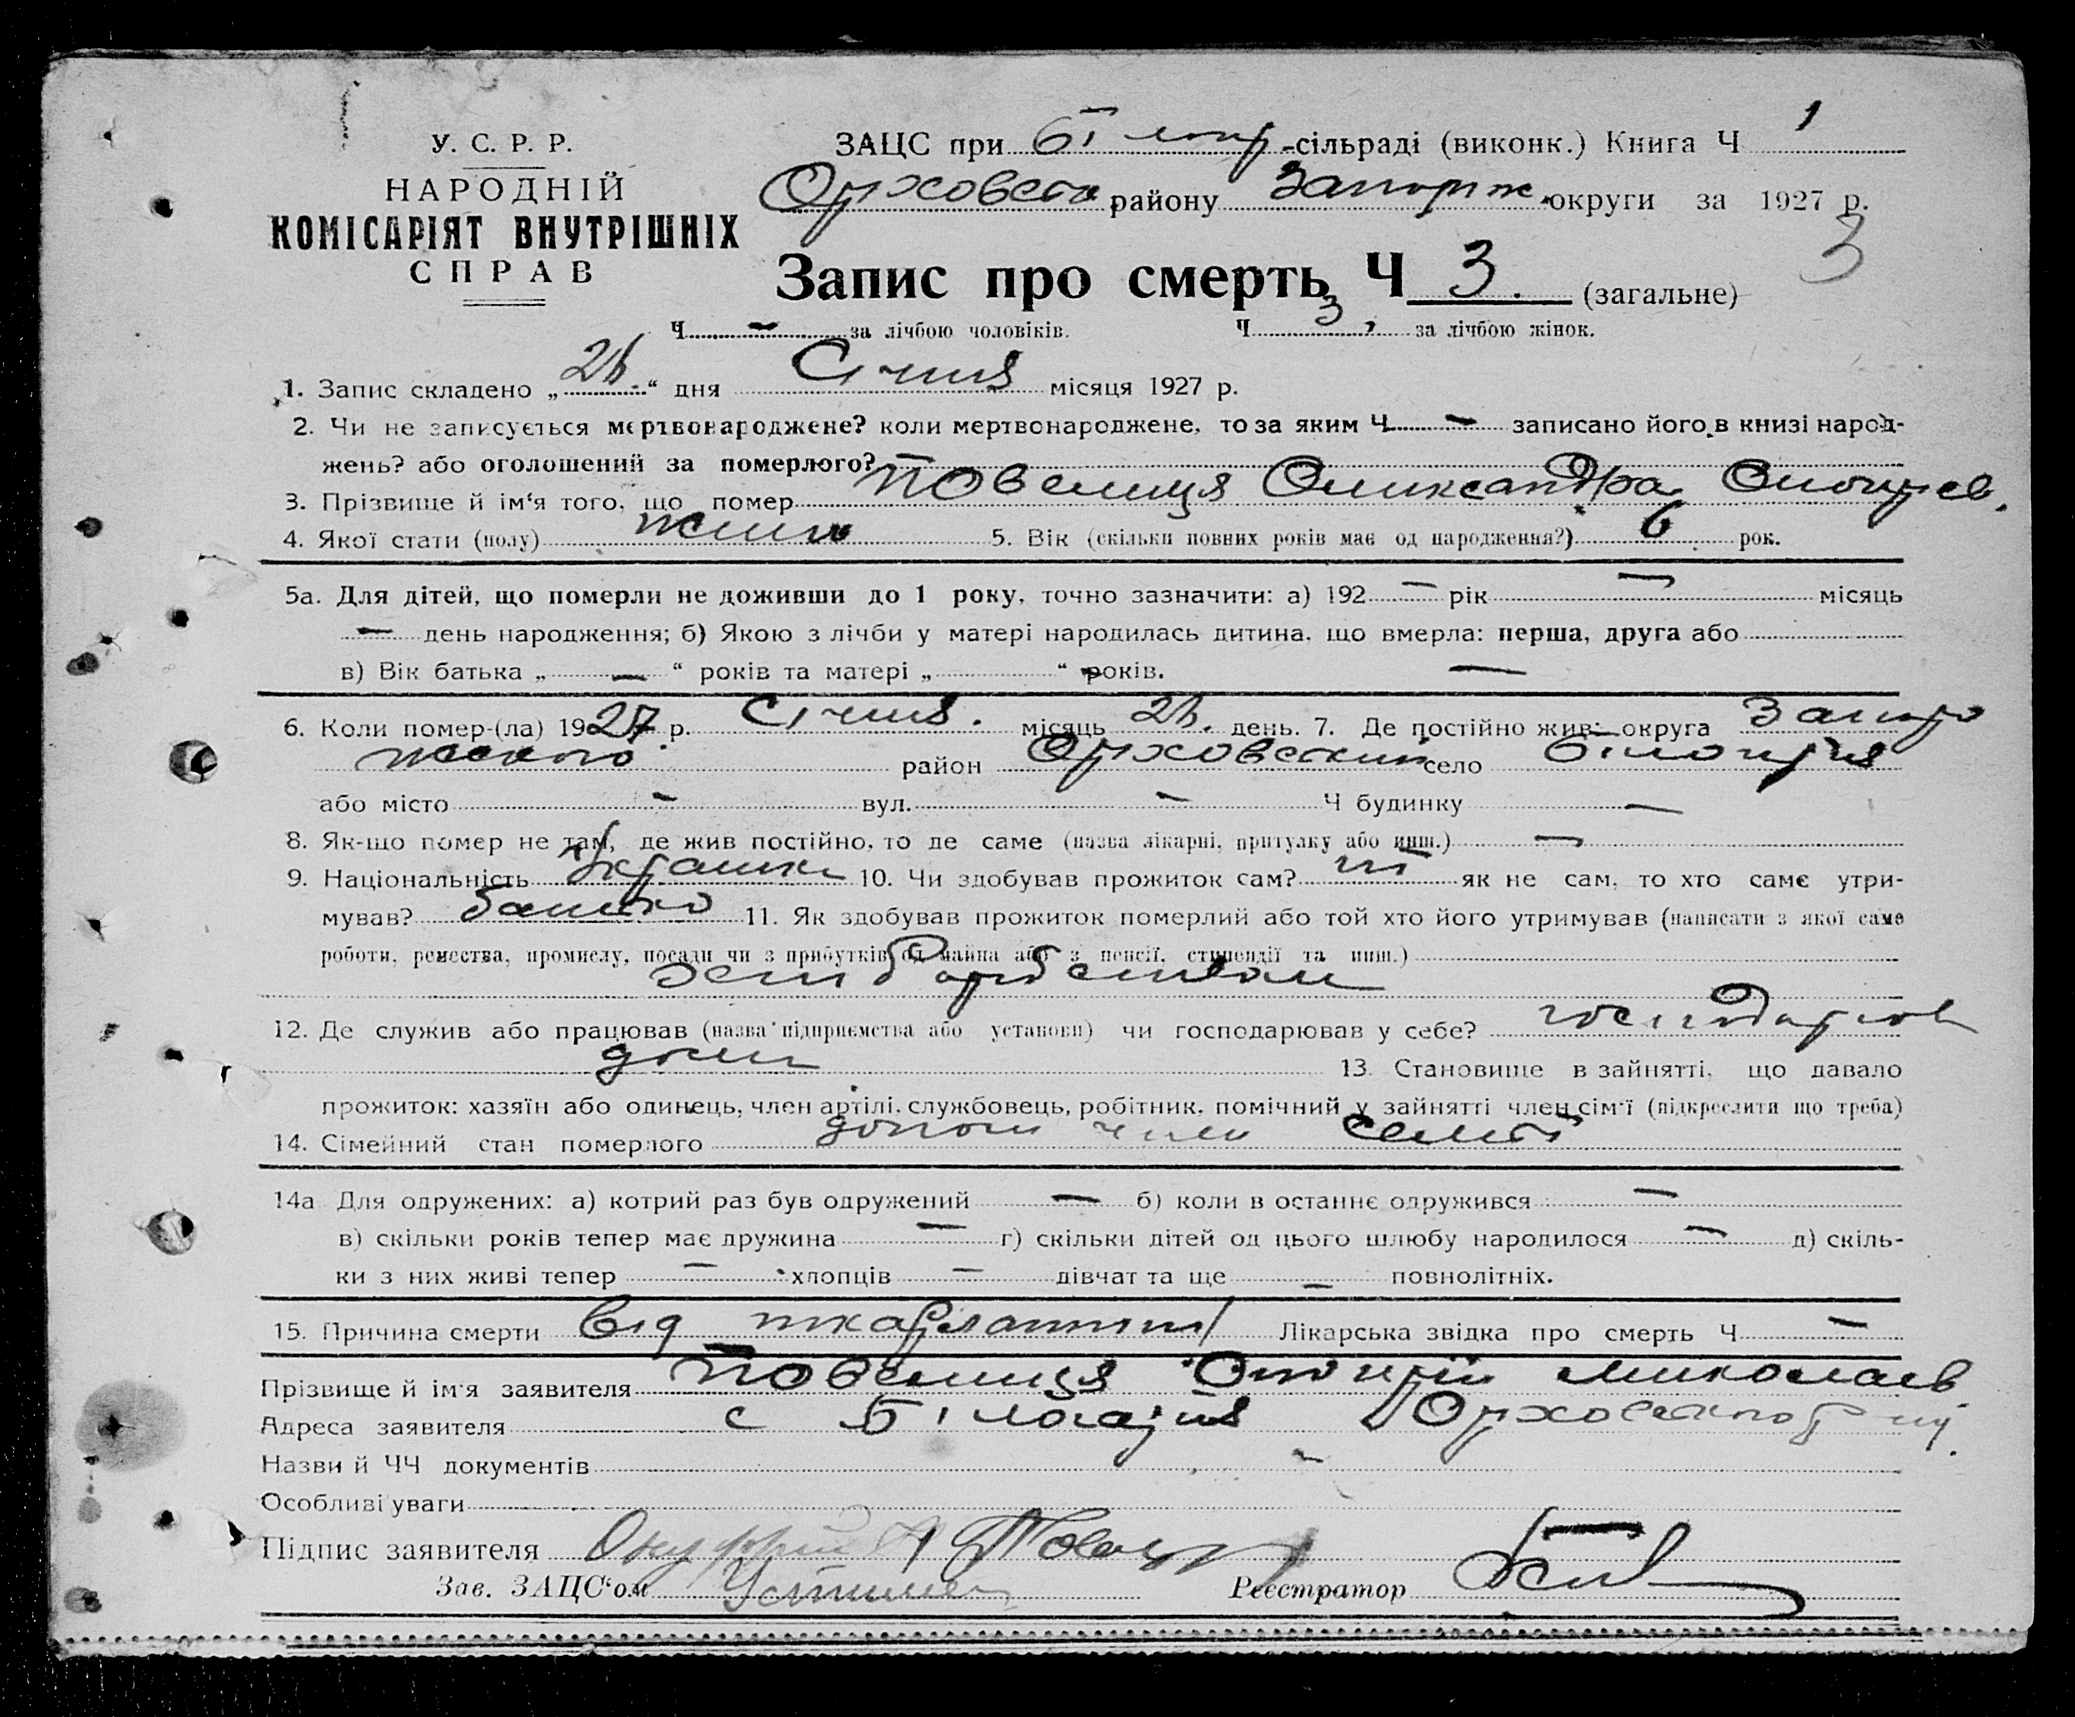 У. С. Р. Р.
НАРОДНІЙ
КОМІСАРІЯТ ВНУТРІШНІХ
СПРАВ
ЗАЦС при -сільраді (виконк.) Книга Ч 1
району округи за 1927 р.
3
Запис про смерть Ч 3. (загальне)
Ч — за лічбою чоловіків. Ч 3 за лічбою жінок.
1. Запис складено „ “ дня Січня місяця 1927 р.
2. Чи не записується мертвонароджене? коли мертвонароджене, то за яким Ч — записано його в книзі народ-
жень? або оголошений за померлого?
3. Прізвище й ім‘я того, що помер Повелиця Олександра
4. Якої стати (полу) 5. Вік (скільки повних років має од народження?) 6 рок.
5а. Для дітей, що померли не доживши до 1 року, точно зазначити: а) 192 — рік — місяць
— день народження; б) Якою з лічби у матері народилась дитина, що вмерла: перша, друга або
в) Вік батька „ — “ років та матері „ “ років. —
6. Коли помер-(ла) 1927 р. Січня. місяць день. 7. Де постійно жив: округа Запоро
жского район село
або місто — вул. — Ч будинку —
8. Як-що помер не там, де жив постійно, то де саме (назва лікарні, притулку або инш.) —
9. Національність 10. Чи здобував прожиток сам? ні як не сам, то хто саме утри-
мував? батько 11. Як здобував прожиток померлий або той хто його утримував (написати з якої саме
роботи, ремества, промислу, посади чи з прибутків од майна або з пенсії, стипендії та инш.)
12. Де служив або працював (назва підприємства або установи) чи господарював у себе?
дома 13. Становище в зайнятті, що давало
прожиток: хазяїн або одинець, член артілі, службовець, робітник, помічний у зайнятті член сім‘ї (підкреслити що треба)
14. Сімейний стан померлого член
14а Для одружених: а) котрий раз був одружений — б) коли в останнє одружився —
в) скільки років тепер має дружина — г) скільки дітей од цього шлюбу народилося — д) скіль-
ки з них живі тепер — хлопців — дівчат та ще — повнолітніх.
15. Причина смерти від шкарлатини Лікарська звідка про смерть Ч —
Прізвище й ім‘я заявителя Повелиця
Адреса заявителя с
Назви й ЧЧ документів —
Особливі уваги
Підпис заявителя
Зав. ЗАЦС‘ом Реєстратор